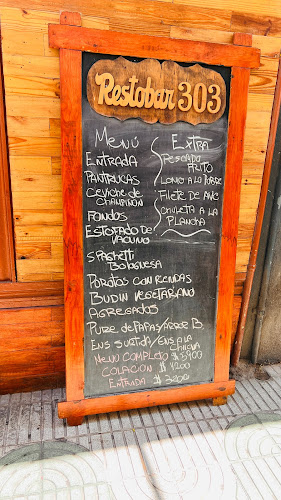 Restobar 303
MENÚ
ENTRADA
PANTRUCAS
CEVICHE DE
CHAMPIÑON
FONDOS
ESTOFADO DE
VACUNO
SPAGHETTI
BOLOGNESA
POROTOS CON RIENDAS
BUDIN VEGETARIANO
AGREGADOS
PURE DE PAPAS/ARROZ B.
ENS SURTIDA/ENS A LA
CHILENA
MENU COMPLETO $5900
COLACION $4200
ENTRADA $
EXTRA
PESCADO
FRITO
LOMO A LO POBRE
FILETE DE AVE
CHULETA A LA
PLANCHA